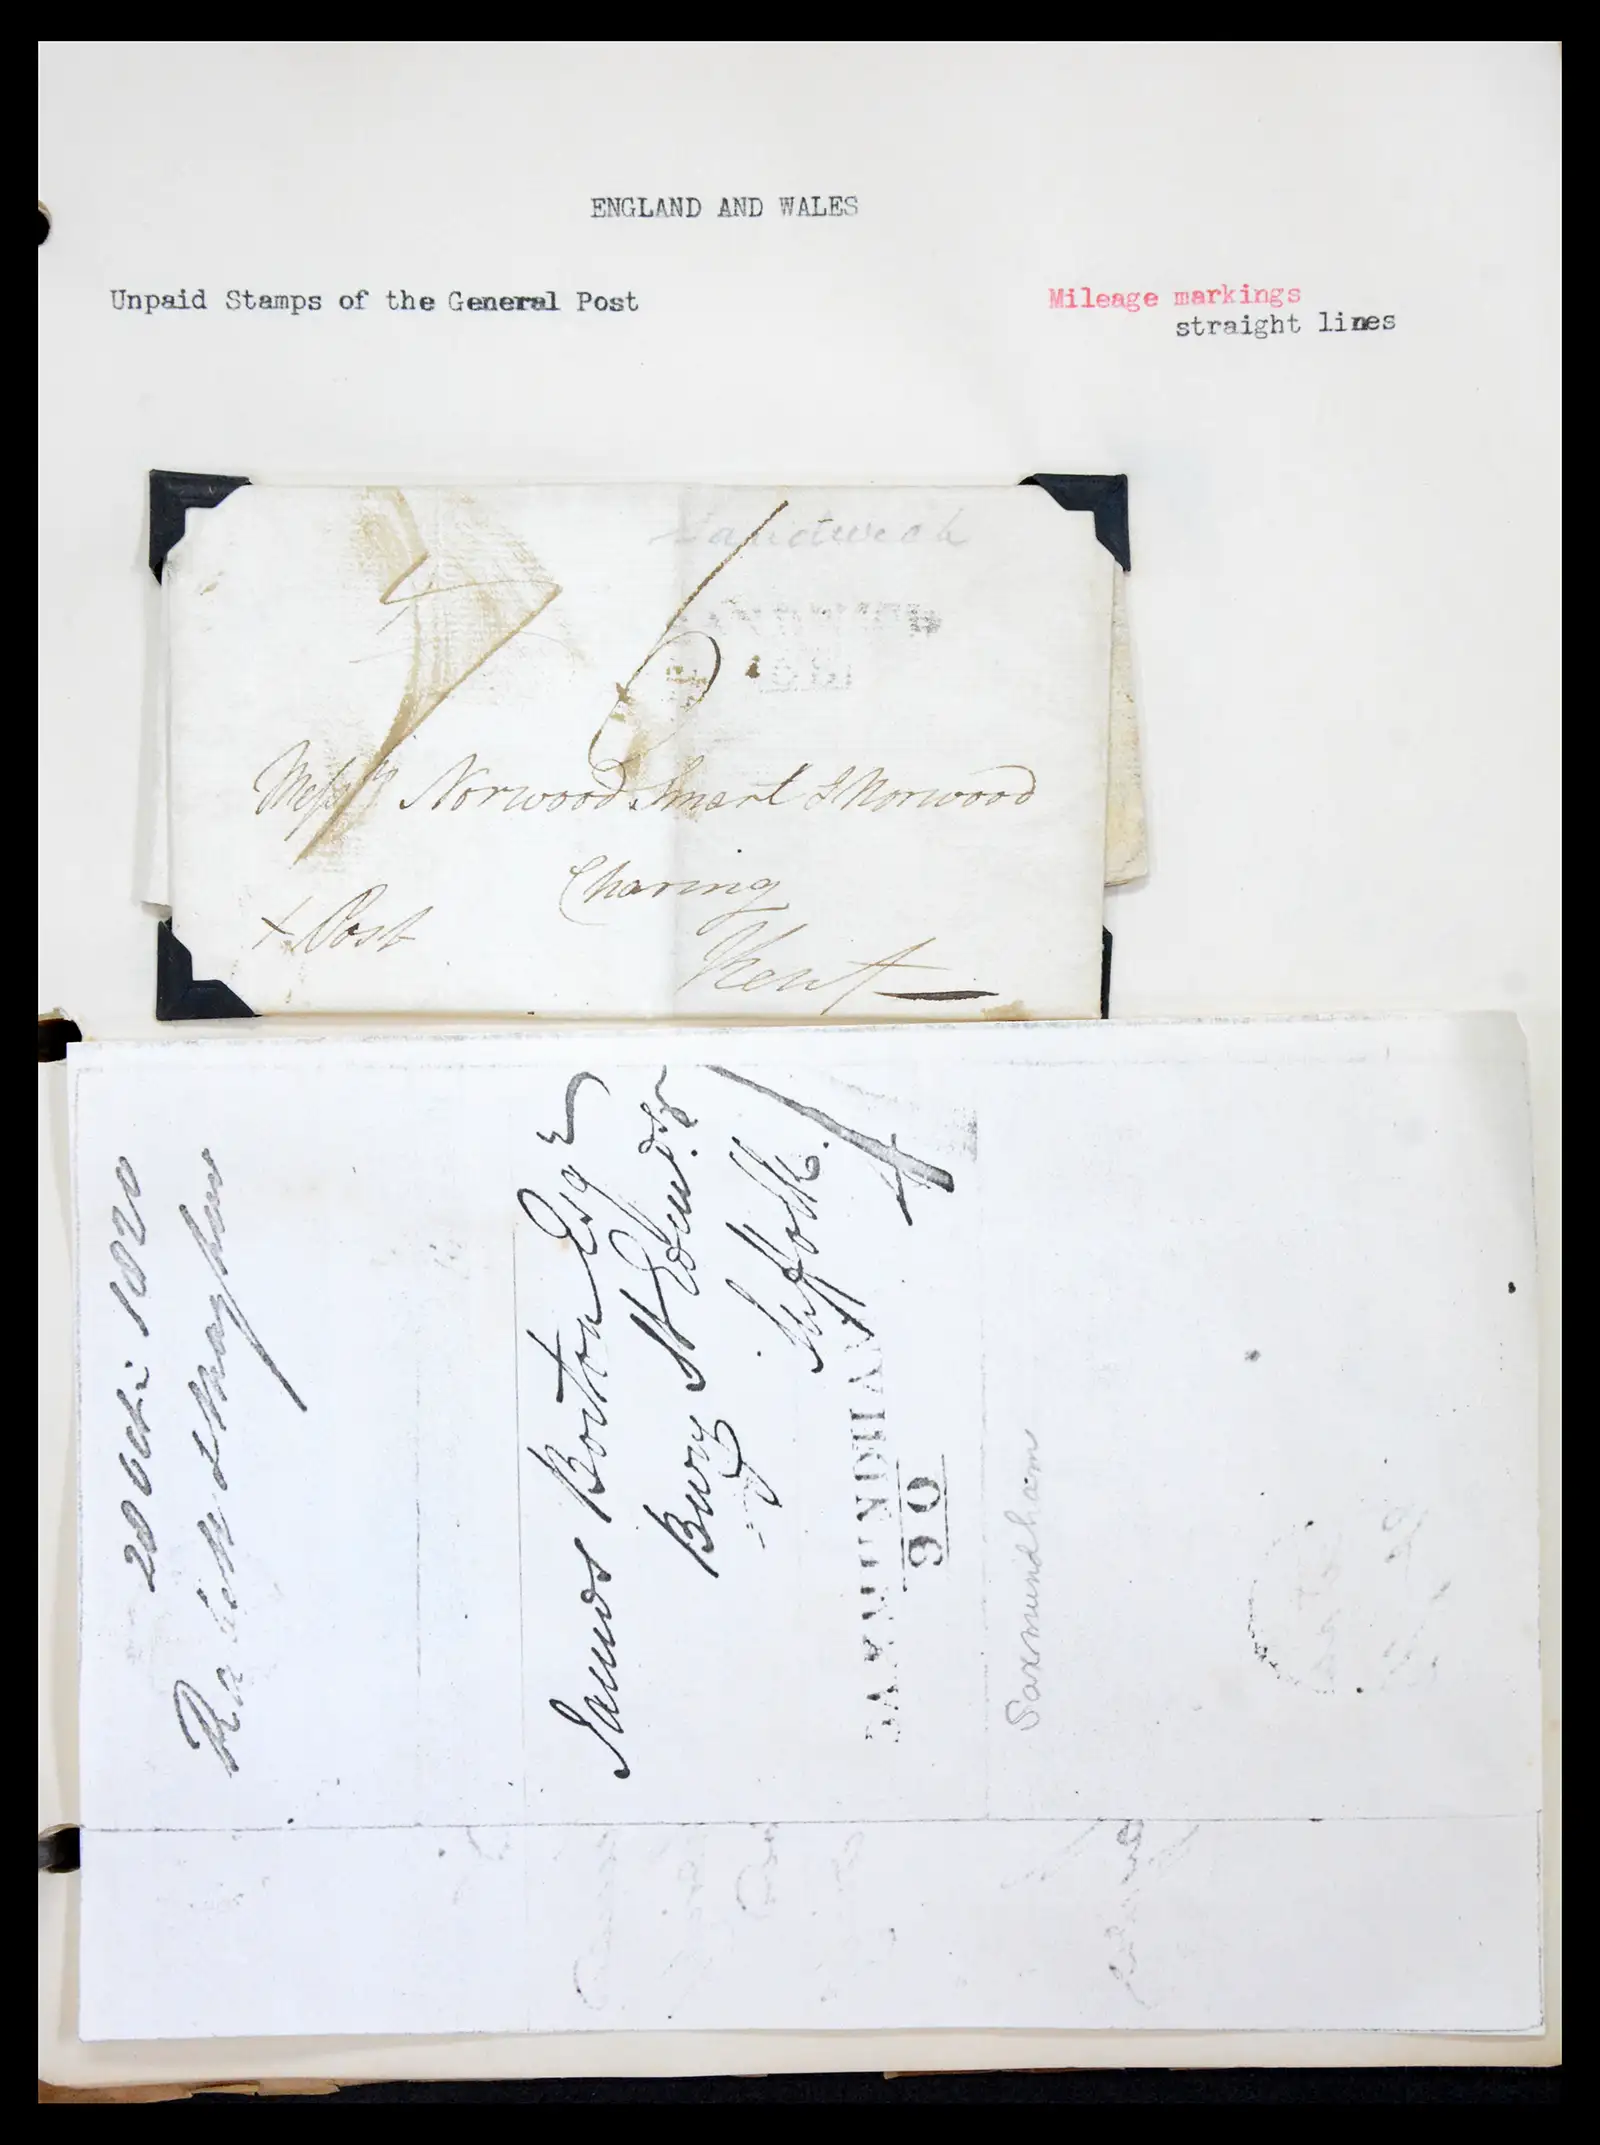 ENGLAND AND WALES
Unpaid Stamps of the General Post
Mileage markings
straight lines
Sandwich
Messrs Norwood Smart & Norwood
Charing
+ Post
Kent
28 Octr 1820
James Borton Esqr
Bury St Edmds
Suffolk.
SAXMUNDHAM
90
Saxmundham